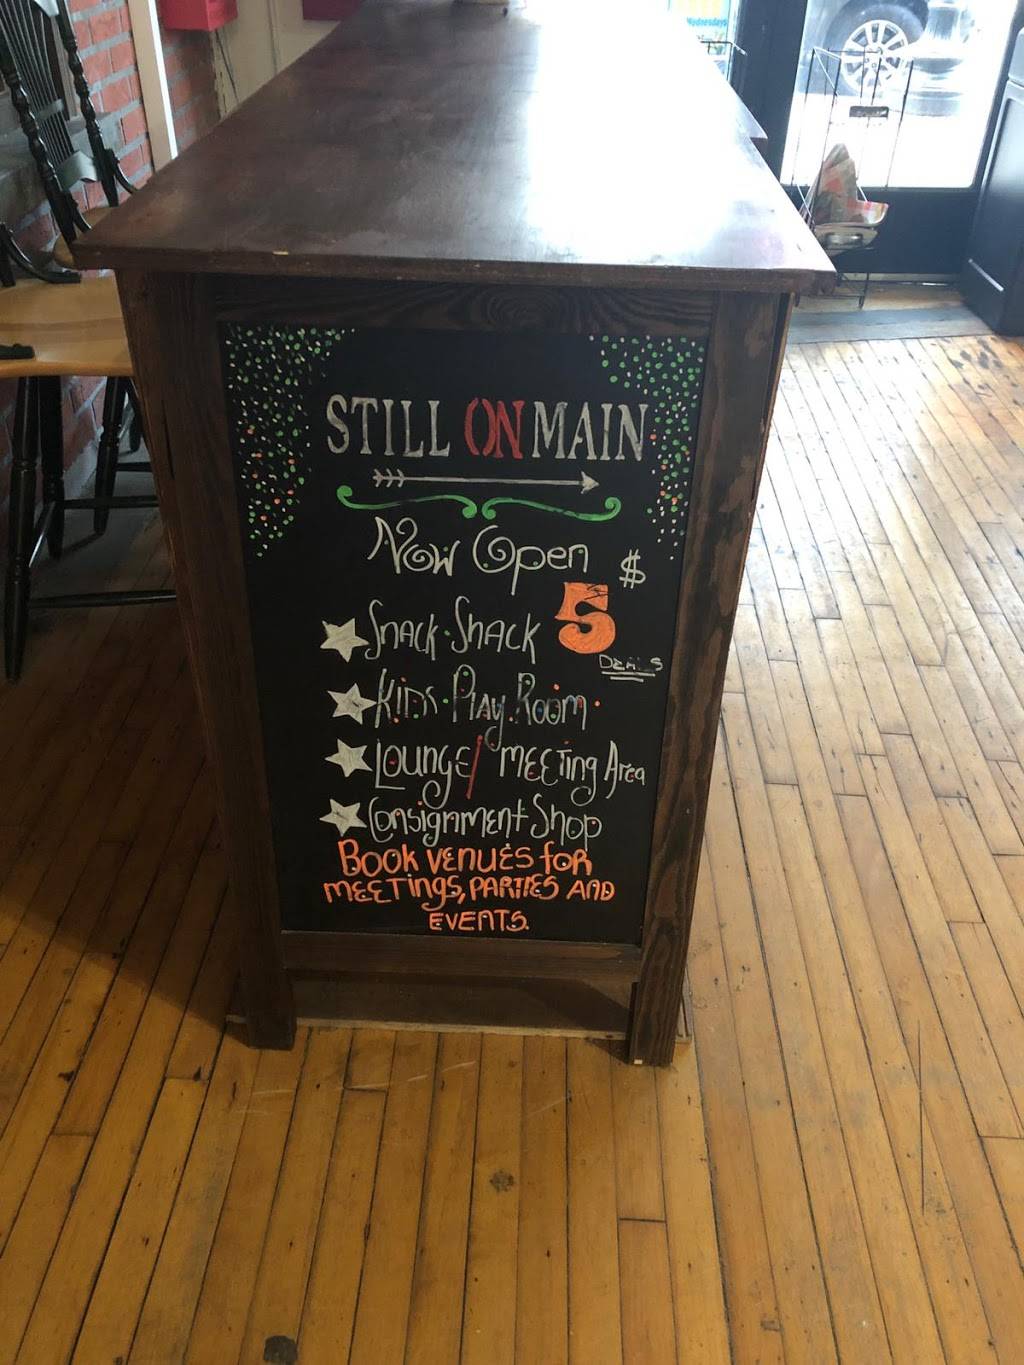 Wednesdays
STILL ON MAIN
Now Open
$5 DEALS
Snack Shack
Kids Play Room
Lounge/ Meeting Area
Consignment Shop
Book venues for
meetings, parties and
events.